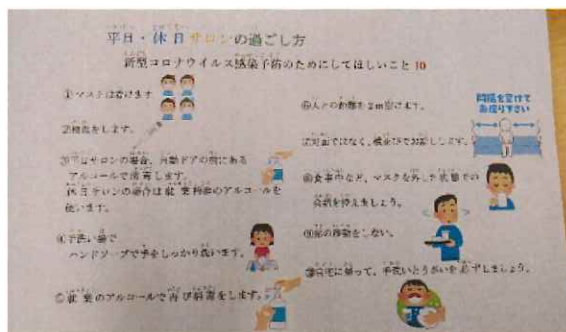 平日・休日サロンの過ごし方
新型コロナウイルス感染予防のためにしてほしいこと 10
①マスクは着けます
②検温をします。
③平日サロンの場合、自動ドアの前にある
アルコールで消毒します。
休日サロンの場合は就業 のアルコールを
使います。
④手洗い場で
ハンドソープで手をしっかり洗います。
⑤就業のアルコールで再び消毒をします。
⑥人との距離を2m空けます。
⑦対面ではなく、横並びでお話しします。
間隔を空けて
お座り下さい
⑧食事中など、マスクを外した状態での
会話を控えましょう。
⑨席の移動をしない。
⑩自宅に帰って、手洗いとうがいを必ずしましょう。